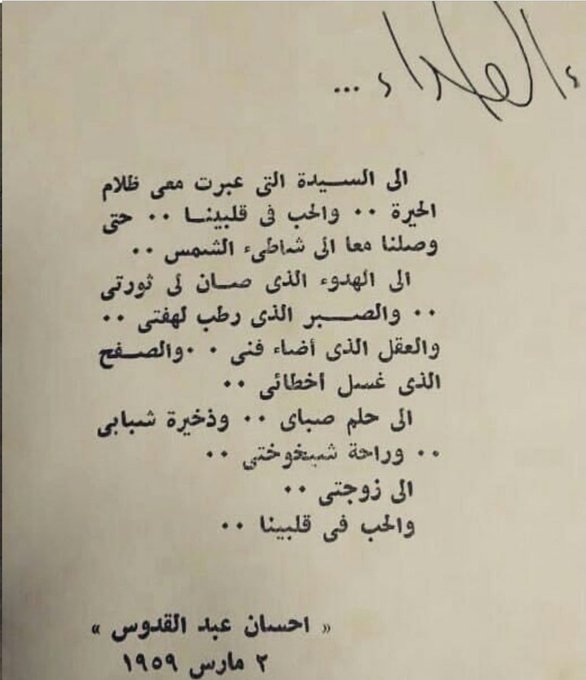 الاهداء ...
الى السيدة التى عبرت معى ظلام
الحيرة ٠٠ والحب فى قلبينا ٠٠ حتى
وصلنا معا الى شاطىء الشمس ٠٠
الى الهدوء الذى صان لى ثورتى
٠٠ والصبر الذى رطب لهفتى ٠٠
والعقل الذى أضاء فنى ٠٠ والصفح
الذى غسل أخطائى ٠٠
الى حلم صباى ٠٠ وذخيرة شبابى
٠٠ وراحة شيخوختى ٠٠
الى زوجتى ٠٠
والحب فى قلبينا ٠٠
« احسان عبد القدوس »
٢ مارس ١٩٥٩